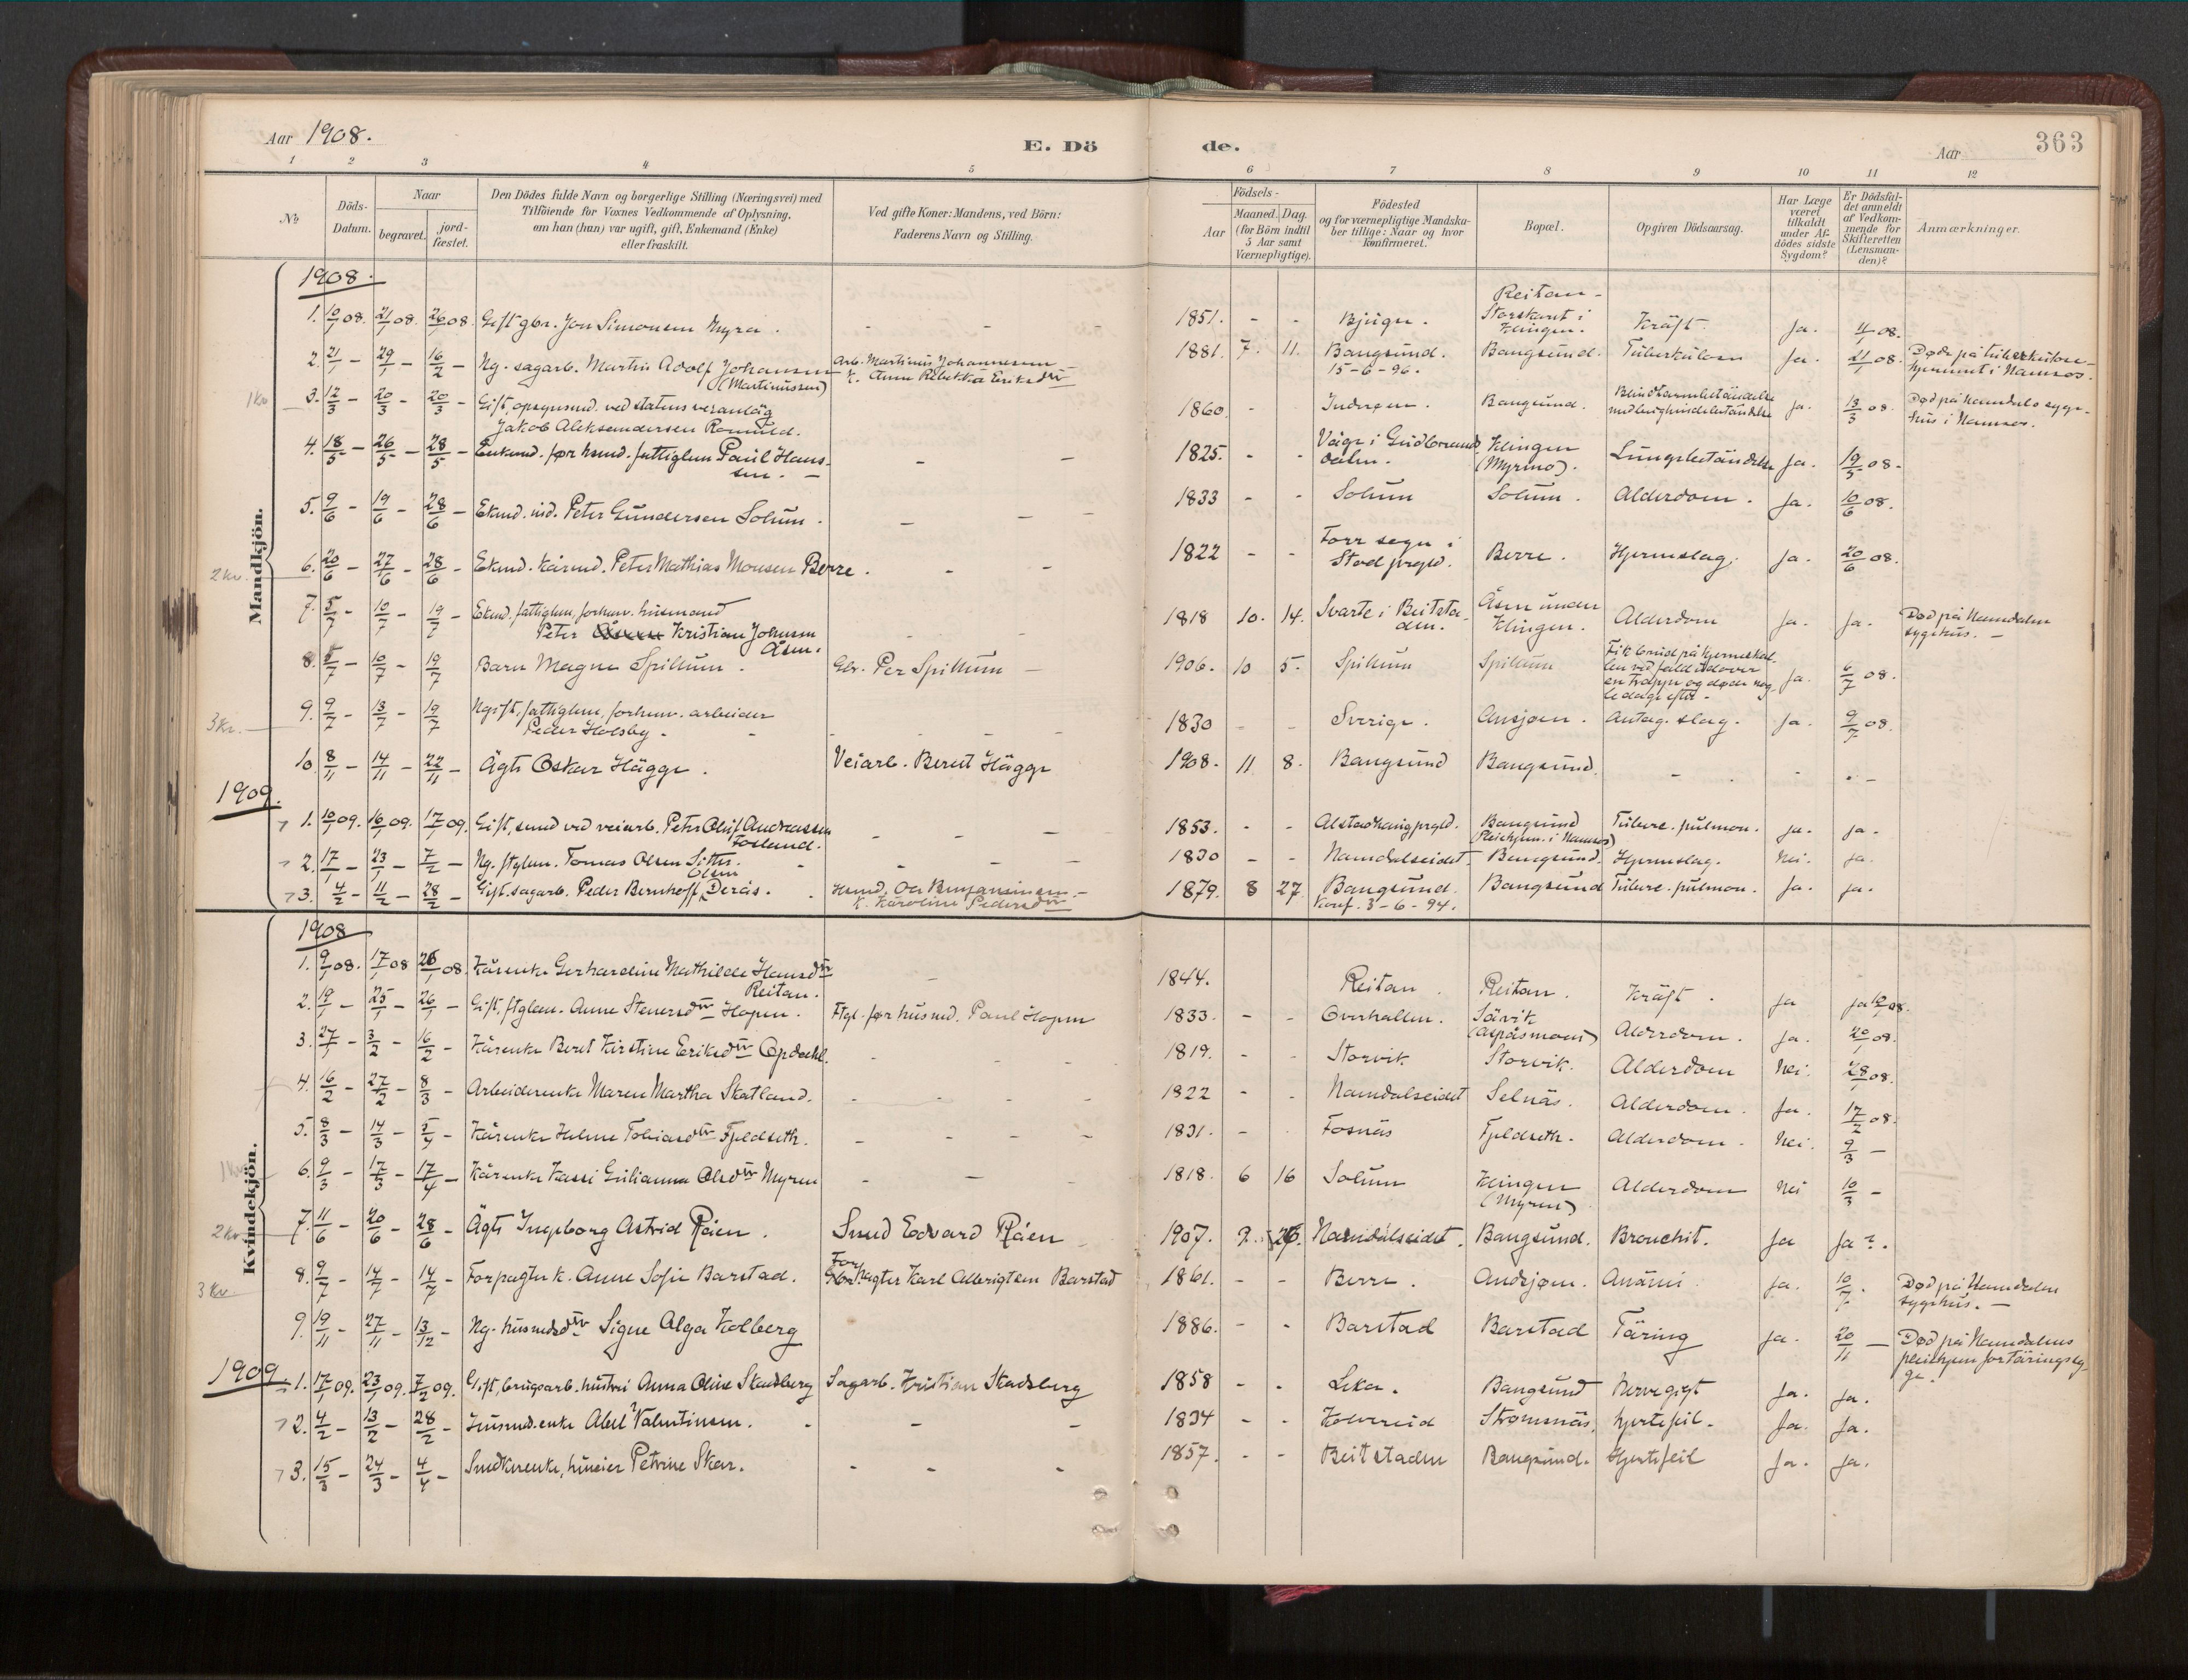 Aar 1908.
E. Dö
de.
Aar
363
1 2 3 4 5 6 7 8 9 10 11 12
No
Döds-Datum.
Naar
begravet.
jord-fæstet.
Den Dödes fulde Navn og borgerlige Stilling (Næringsvei) med
Tilföiende for Voxnes Vedkommende af Oplysning,
om han (hun) var ugift, gift, Enkemand (Enke)
eller fraskilt.
Ved gifte Koner: Mandens, ved Börn:
Faderens Navn og Stilling.
Födsels-
Aar
Maaned. Dag.
(for Börn indtil
5 Aar samt
Værnepligtige).
Födested
og for værnepligtige Mandska-
ber tillige: Naar og hvor
konfirmeret.
Bopæl.
Opgiven Dödsaarsag.
Har Læge
været
tilkaldt
under Af-
dödes sidste
Sygdom?
Er Dödsfal-
det anmeldt
af Vedkom-
mende for
Skifteretten
(Lensman-
den)?
Anmærkninger.
Mandkjön.
1908.
1. 10/1 08. 21/1 08. 26/1 08. Gift gbr. Jon Simonsen Myra. - - - 1851. - - Bjugn. Reitan-
Storskaret i
Klingen. Kräft. Ja. 11/1 08.
2. 21/1 - 29/1 - 16/2 - Ug. sagarb. Martin Adolf Johansen
(Martinussen)
Arb. Martinus Johannessen
K. Anne Rebekka Eriksdtr
1881. 7. 11. Bangsund.
15-6-96. Bangsund. Tuberkulose Ja. 21/1 08. Død på tuberkulose-
hjemmet i Namsos.
1 kr
3. 12/3 - 20/3 - 20/3 - Gift, opsynsmd. ved statens veianläg
Jakob Aleksandersen Romuld.
1860. - - Inderøen. Bangsund. Blindtarmbetändelse
med bughindebetändelse Ja. 13/3 08. Død på Namdals syge-
hus i Namsos.
4. 18/5 - 26/5 - 28/5 - Enkemd. før husmd. fattiglem Paul Hans-
sen. - - - 1825. - - Våge i Gudbrands
dalen. Klingen
(Myrmo). Lungebetändelse Ja. 19/5 08.
5. 9/6 - 19/6 - 28/6 - Ekmd. ind. Peter Gundersen Solum. - - - 1833 - - Solum Solum. Alderdom. Ja. 10/6 08.
2 kr.
6. 20/6 - 27/6 - 28/6 - Ekmd. kårmd. Peter Mathias Monsen Berre. - - 1822 - - Forr sogn i
Stod prgld. Berre. Hjerneslag. Ja. 20/6 08.
7. 5/7 - 10/7 - 19/7 Ekmd. fattiglem, forhenv. husmand
Peter Kristian Johnsen
Åsen. - - 1818 10. 14. Svarte i Beitsta-
den. Åsen under
Klingen. Alderdom Ja. Ja. Død på Namdalens
sygehus. -
8. 5/7 - 10/7 - 19/7 Barn Magne Spillum. Gbr. Per Spillum - 1906. 10 5. Spillum Spillum Fik brud på hjerneskal-
len ved fald udover
en trappe og døde nog-
le dage efter - Ja. 6/7 08.
3 Kr.
9. 9/7 - 13/7 - 19/7 Ugift, fattiglem, forhenv. arbeider
Peder Holsby. - - - 1830 - - Sverige. Ansjøen. Antag. slag. Ja. 9/7 08.
10. 8/11 - 14/11 - 22/11 - Ägte Oskar Hägge. Veiarb. Berret Hägge 1908. 11 8. Bangsund Bangsund. - - -
1909.
1. 10/1 09. 16/1 09. 17/1 09. Gift, smed ved veiarb. Peter Oluf Andreassen
Fosland. - - - 1853. - - Alstadhaug prgld. Bangsund
(Pleiehjem. i Namsos) Tuberc. pulmon. Ja. Ja.
2. 17/1 - 23/1 - 7/2 - Ug. ftglem. Tomas Olsen Sitter. - - - 1830 - - Namdalseidet Bangsund. Hjerneslag. Nei. Ja.
3. 4/2 - 11/2 - 28/2 - Gift. sagarb. Peder Bernhoff Olsen Derås. Husmd. Ole Benjaminsen
K. Karoline Pedersdtr
1879. 8 27 Bangsund.
Konf. 3-6-94. Bangsund Tuberc. pulmon. Ja. Ja.
Kvindekjön.
1908
1. 9/1 08. 17/1 08 26/1 08. Kårenke Gerhardine Mathilde Hansdtr
Reitan. - 1844. Reitan. Reitan. Kräft. Ja Ja 12/1 08.
2. 19/1 - 25/1 - 26/1 - Gift, ftglem. Anne Stenersdtr Hopen. Ftgl. før husmd. Paul Hopen 1833. - - Overhallen. Sävik
(Aspåsmoen) Alderdom. Ja. 20/1 08.
3. 27/1 - 3/2 - 16/2 - Kårenke Beret Kirstine Eriksdtr Opdahl. - - - 1819. - - Storvik. Storvik. Alderdom Nei. 28/1 08.
4. 16/2 - 27/2 - 8/3 - Arbeiderenke Maren Martha Skatland. - - - 1822 - - Namdalseidet Selnäs. Alderdom. Ja. 17/2 08.
5. 8/3 - 14/3 - 5/4 - Kårenke Helene Tobiasdtr Fjeldseth. - - - 1831. - Fosnäs Fjeldseth. Alderdom. Nei. 9/3 -
1 Kr
6. 9/3 - 17/3 - 17/4 - Kårenke Kassi Gulianna Olsdtr Myren - - - 1818. 6 16 Solum Klingen
(Myren) Alderdom Nei 10/3 -
2 kr
7. 11/6 - 20/6 - 28/6 - Ägte Ingeborg Astrid Råen. Smed Edvard Råen 1907. 9. 26. Namdalseidet. Bangsund. Bronchit. Ja Ja ?.
3 Kr.
8. 9/7 - 14/7 - 14/7 - Forpagter k. Anne Sofie Barstad. Forpagter Karl Albrigtsen Barstad 1861. - - Berre. Andsjøen. Anämi. Ja. 10/7. Død på Namdalens
sygehus. -
9. 19/11 - 27/11 - 13/12 - Ug. husmdsdtr Signe Alga Kolberg 1886. - - Barstad Barstad Täring Ja. 20/11 - Død på Namdalens
pleiehjem for täringssy-
ge.
1909.
1. 17/1 09. 23/1 09. 7/2 09. Gift, brugsarb. hustru Anna Oline Stadsberg Sagarb. Kristian Stadsberg 1858 - - Leka. Bangsund Nervegigt Ja. Ja.
2. 4/2 - 13/2 - 28/2 - Husmd.enke Abel Valentinsen. - - - 1834 - - Kolvereid Strømsnäs. Hjertefeil. Ja. Ja.
3. 15/3 - 24/3 - 4/4 - Smedkerenke, huseier Petrine Skar. - - - 1857. - - Beitstaden Bangsund. Hjertefeil Ja. Ja.